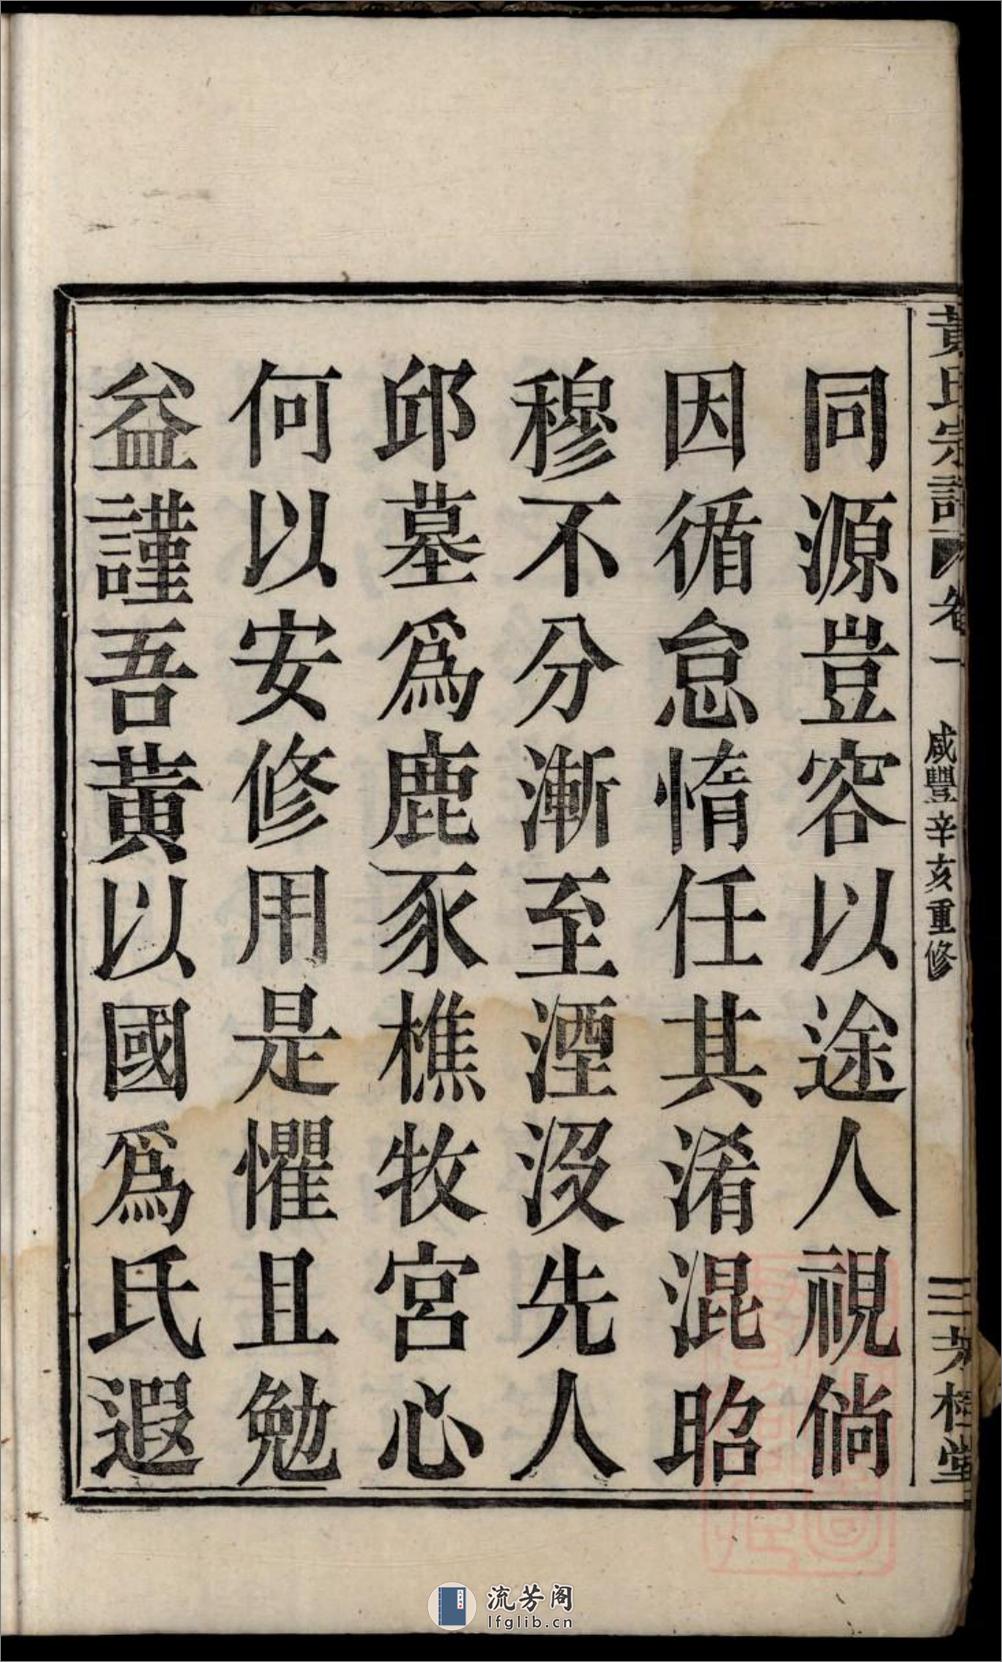 黃氏宗譜 卷一 咸豐辛亥重修 二
桂堂
同源豈容以途人視倘
因循怠惰任其淆混昭
穆不分漸至湮沒先人
邱墓爲鹿豕樵牧宮心
何以安修用是懼且勉
益謹吾黃以國爲氏遐
流芳阁
lfglib.cn